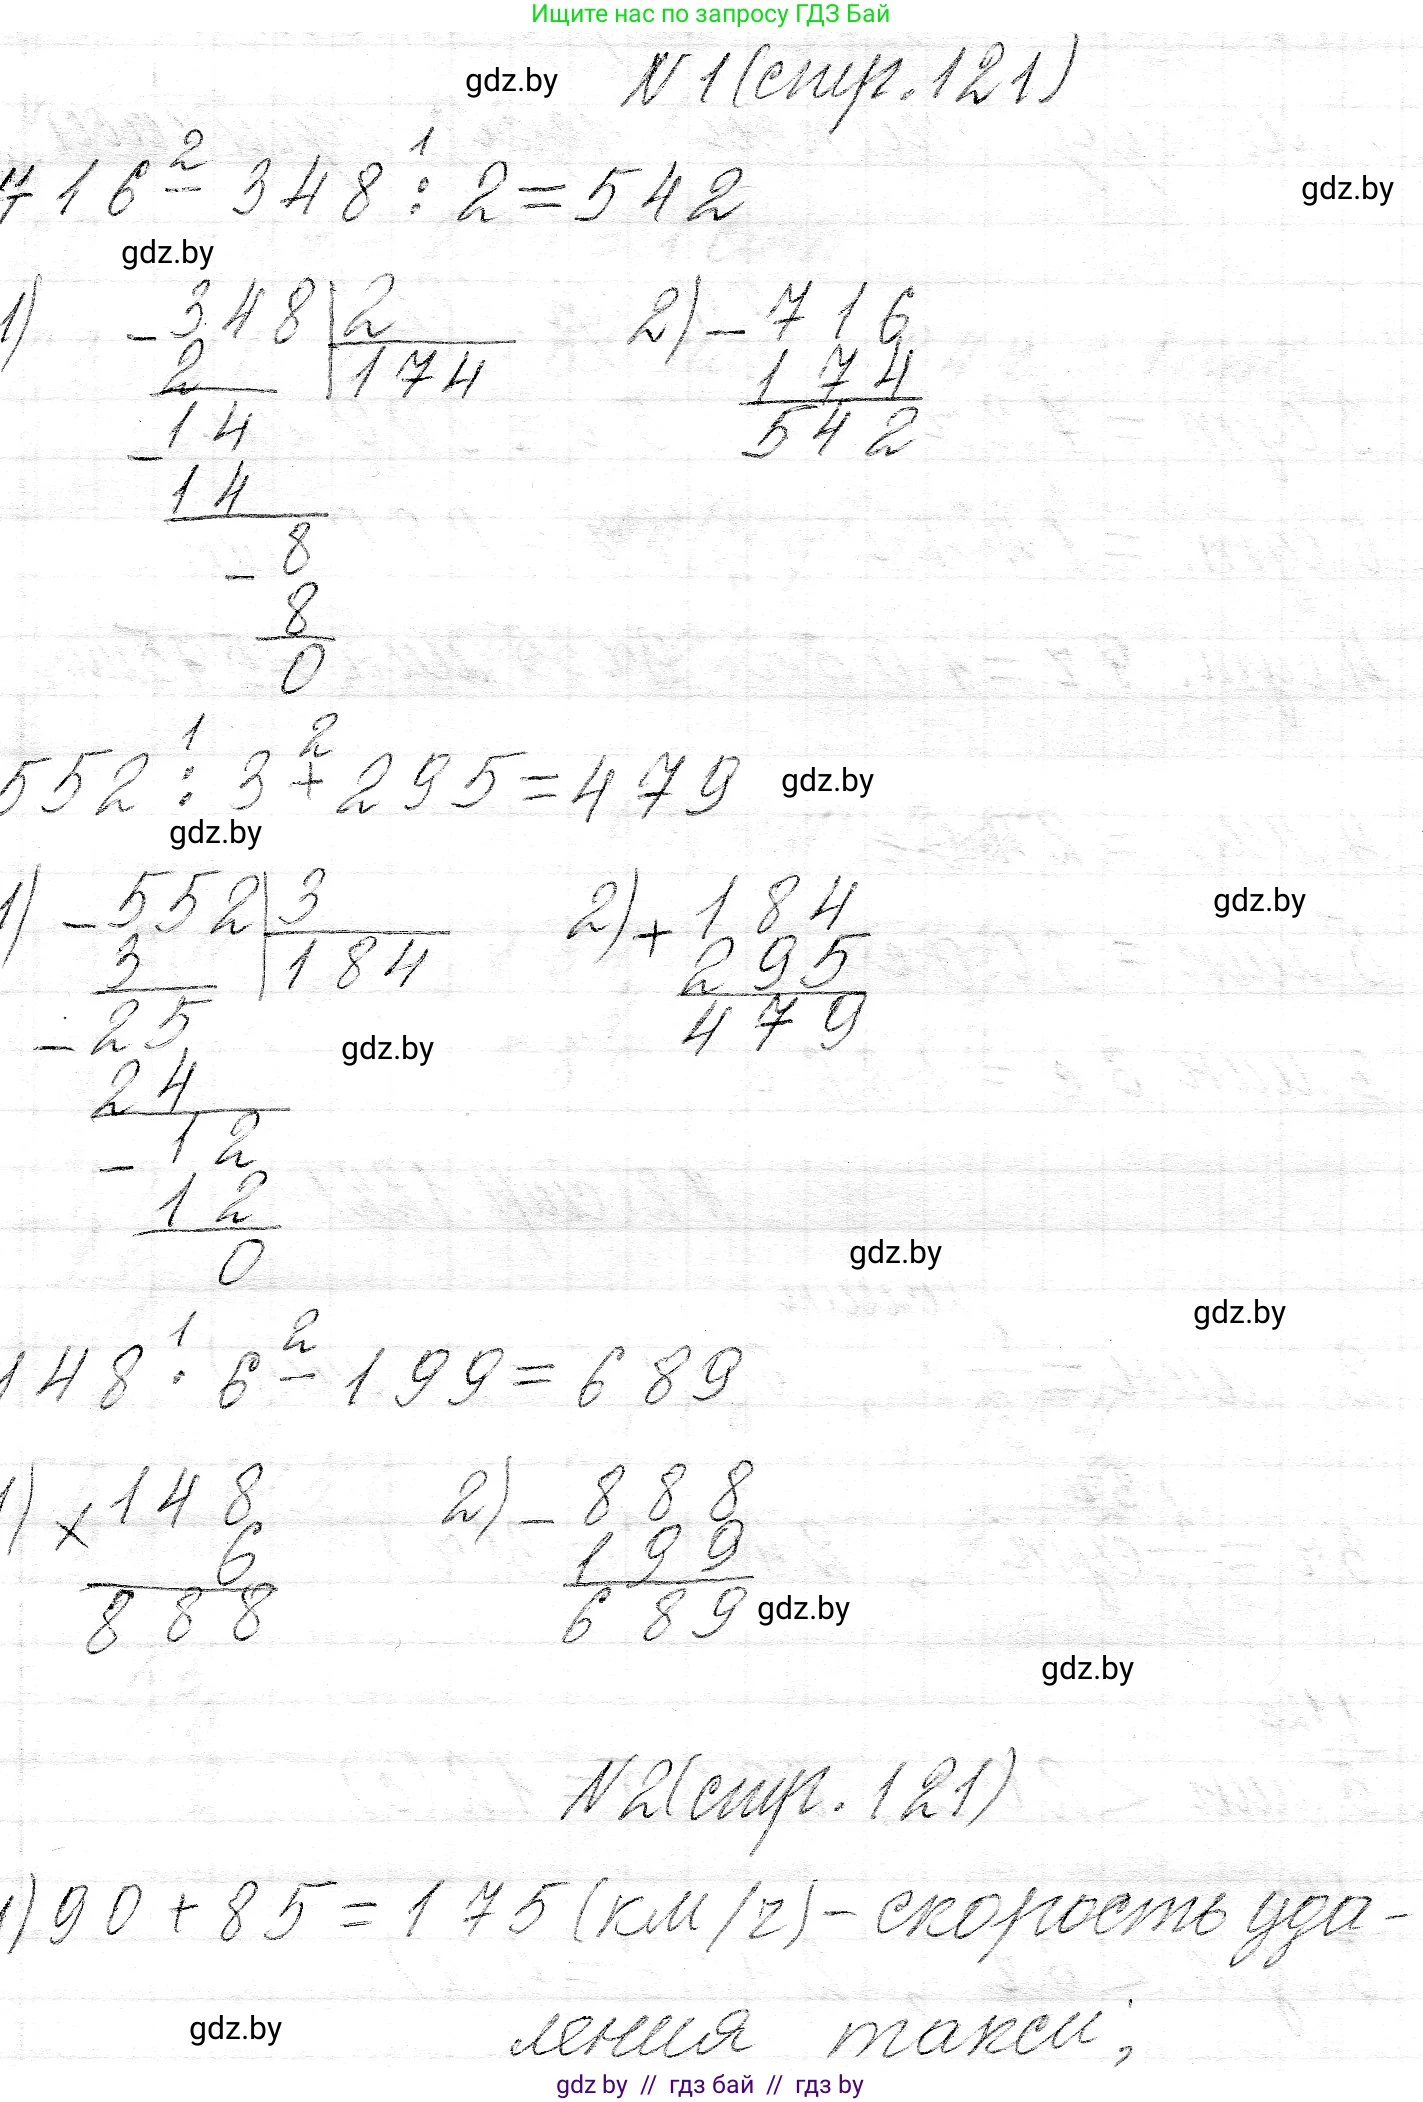 Ищите нас по запросу ГДЗ Бай
gdz.by N 1 (стр. 121)
2 1
716 - 348 : 2 = 542 gdz.by
gdz.by
1) - 348 | 2 2) - 716
2 174 174
- 14 542
14
- 8
8
0
1 2
552 : 3 + 295 = 479 gdz.by
gdz.by
1) - 552 | 3 2) + 184 gdz.by
3 184 295
- 25 479
24 gdz.by
- 12
12
0
gdz.by
gdz.by
1 2
148 · 6 - 199 = 689
1) × 148 2) - 888
6 199
888 689 gdz.by
gdz.by
N 2 (стр. 121)
1) 90 + 85 = 175 (км/ч) - скорость уда-
gdz.by ления такси;
gdz by // гдз бай // гдз by